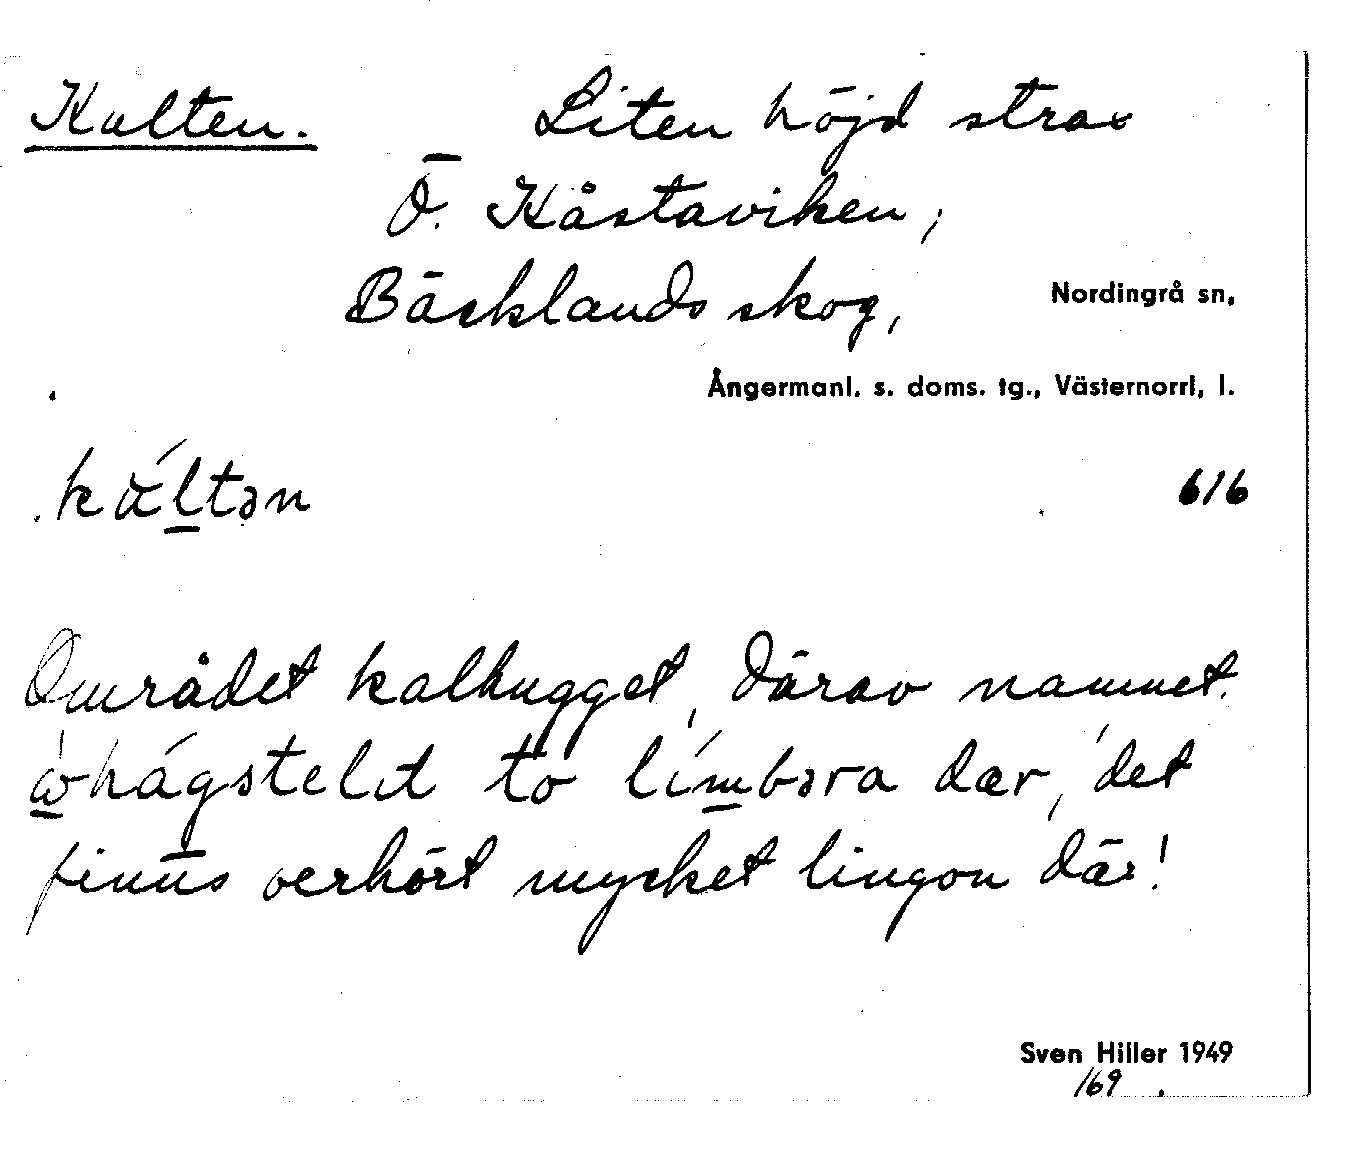 Kalten. Liten höjd strax
Ö. Kåstaviken,
Bäcklands skog, Nordingrå sn,
Ångermanl. s. doms. tg., Västernorrl. l.
kál̲tən 616
Området kalhugget, därav namnet.
hágsteld to lím̲bəra dær, det
finns oerhört mycket lingon där!
Sven Hiller 1949
169